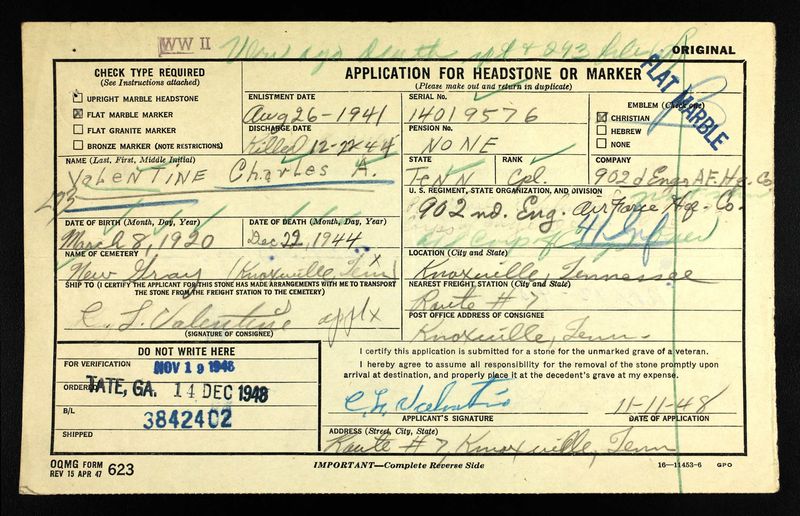 WW II
ORIGINAL
CHECK TYPE REQUIRED
(See Instructions attached)
UPRIGHT MARBLE HEADSTONE
FLAT MARBLE MARKER
FLAT GRANITE MARKER
BRONZE MARKER (NOTE RESTRICTIONS)
APPLICATION FOR HEADSTONE OR MARKER
(Please make out and return in duplicate)
FLAT MARBLE
ENLISTMENT DATE
Aug 26-1941
DISCHARGE DATE
Killed 12-22-44
SERIAL No.
14019576
PENSION No.
NONE
EMBLEM (Check one)
CHRISTIAN
HEBREW
NONE
NAME (Last, First, Middle Initial)
VALENTINE Charles A.
STATE
TENN
RANK
Cpl.
COMPANY
902d Engr AF. Hq. Co.
U. S. REGIMENT, STATE ORGANIZATION, AND DIVISION
902 nd. Eng. Air Force Hq. Co.
DATE OF BIRTH (Month, Day, Year)
March 8, 1920
DATE OF DEATH (Month, Day, Year)
Dec 22, 1944
NAME OF CEMETERY
New Gray (Knoxville, Tenn)
LOCATION (City and State)
Knoxville, Tennessee
SHIP TO (I CERTIFY THE APPLICANT FOR THIS STONE HAS MADE ARRANGEMENTS WITH ME TO TRANSPORT THE STONE FROM THE FREIGHT STATION TO THE CEMETERY)
C. L. Valentine applx
(SIGNATURE OF CONSIGNEE)
NEAREST FREIGHT STATION (City and State)
Route # 7
POST OFFICE ADDRESS OF CONSIGNEE
Knoxville, Tenn.
DO NOT WRITE HERE
FOR VERIFICATION NOV 19 1948
ORDERED TATE, GA. 14 DEC 1948
B/L 3842402
SHIPPED
I certify this application is submitted for a stone for the unmarked grave of a veteran.
I hereby agree to assume all responsibility for the removal of the stone promptly upon
arrival at destination, and properly place it at the decedent's grave at my expense.
C. L. Valentine 11-11-48
APPLICANT'S SIGNATURE DATE OF APPLICATION
ADDRESS (Street, City, State)
Route # 7, Knoxville, Tenn
OQMG FORM
REV 15 APR 47 623
IMPORTANT—Complete Reverse Side
16—11453-6 GPO